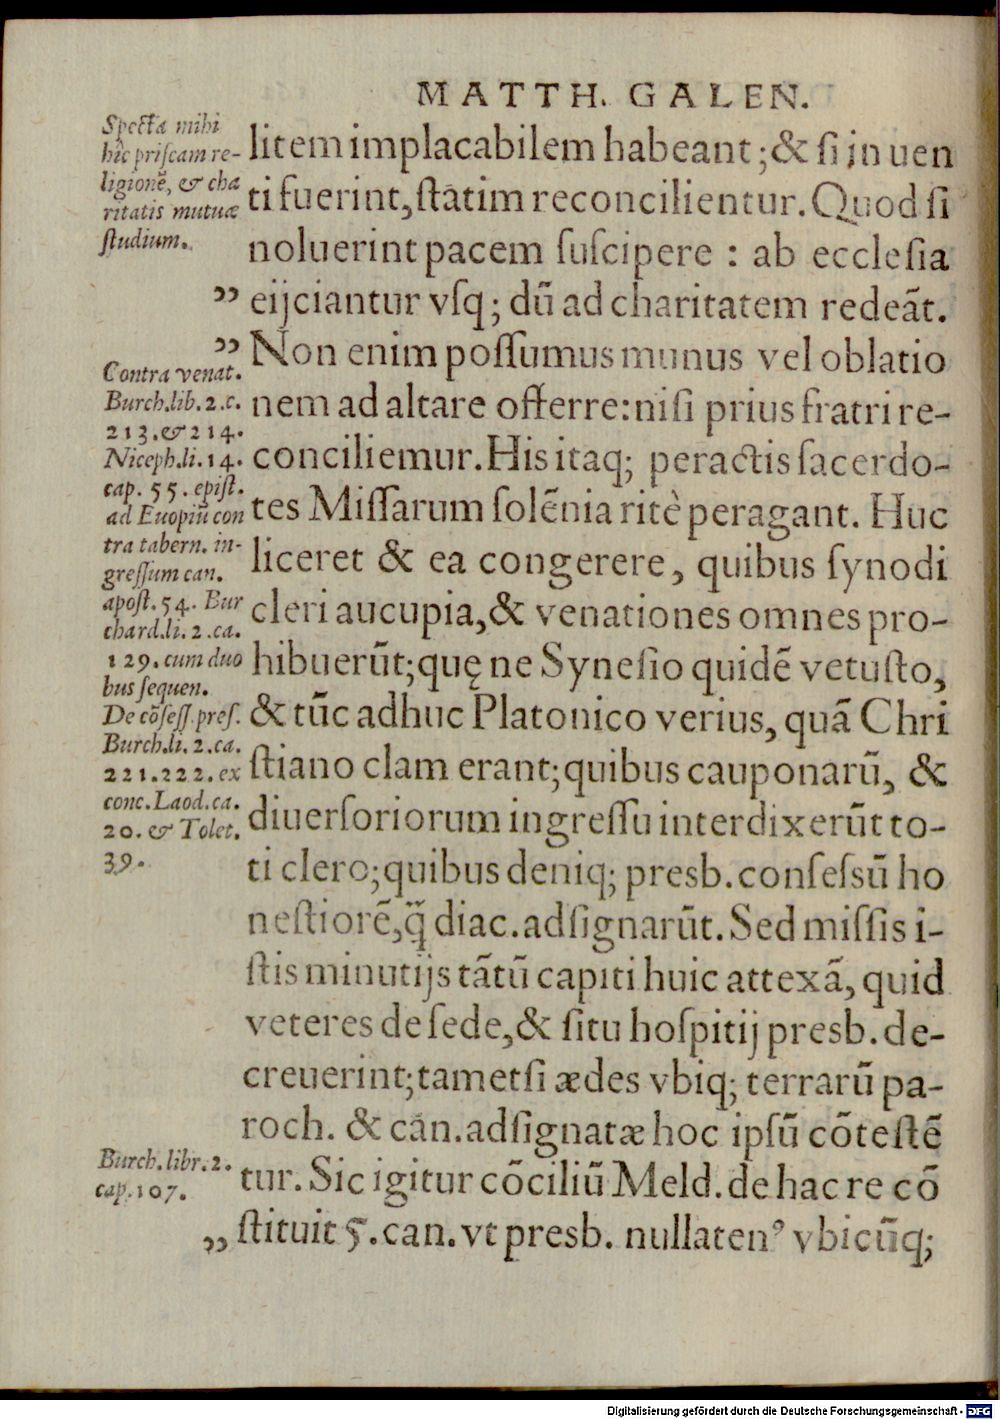 MATTH. GALEN.
Specta mihi
hîc priſcam re-
ligionẽ, & cha
ritatis mutuæ
ſtudium.
litem implacabilem habeant; & ſi in uen
ti fuerint, ſtatim reconcilientur. Quod ſi
noluerint pacem ſuſcipere : ab eccleſia
„ eijciantur vſq; dũ ad charitatem redeãt.
„ Non enim poſſumus munus vel oblatio
nem ad altare offerre: niſi prius fratri re-
conciliemur. His itaq; peractis ſacerdo-
tes Miſſarum ſolẽnia ritè peragant. Huc
liceret & ea congerere, quibus ſynodi
cleri aucupia, & venationes omnes pro-
hibuerũt; quę ne Syneſio quidẽ vetuſto,
& tũc adhuc Platonico verius, quã Chri
ſtiano clam erant; quibus cauponarũ, &
diuerſoriorum ingreſſu interdixerũt to-
ti clero; quibus deniq; presb. conſeſsũ ho
neſtiorẽ, q̃ diac. adſignarũt. Sed miſſis i-
ſtis minutijs tãtũ capiti huic attexã, quid
veteres de ſede, & ſitu hoſpitij presb. de-
creuerint; tametſi ædes vbiq; terrarũ pa-
roch. & can. adſignatæ hoc ipſũ cõteſtẽ
tur. Sic igitur cõciliũ Meld. de hac re cõ
„ ſtituit 5. can. vt presb. nullatenꝰ vbicũq;
Contra venat.
Burch. lib. 2. c.
213. & 214.
Niceph. li. 14.
cap. 55. epiſt.
ad Euopiũ con
tra tabern. in-
greſſum can.
apoſt. 54. Bur
chard. li. 2. ca.
129. cum duo
bus ſequen.
De cõſeſſ. preſ.
Burch. li. 2. ca.
221. 222. ex
conc. Laod. ca.
20. & Tolet.
39.
Burch. libr. 2.
cap. 107.
Digitalisierung gefördert durch die Deutsche Forschungsgemeinschaft - DFG